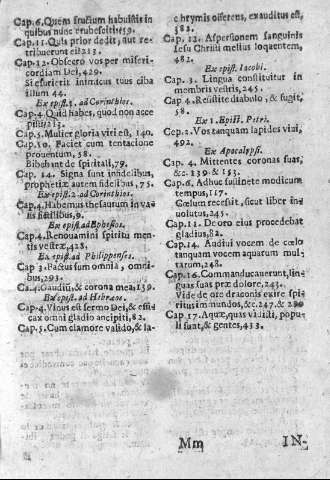 Cap.6. Quem fructum habuistis in
quibus nunc erubescitis? 59.
Cap.11. Quis prior dedit, aut re-
tribuetur ei? 213.
Cap.12. Obsecro vos per miseri-
cordiam Dei, 429.
Si esurierit inimicus tuus ciba
illum 44.
Ex epist. 1. ad Corinthios.
Cap.4. Quid habes, quod non acce
pisti? 213.
Cap.5. Mulier gloria viri est, 140.
Cap.10. Faciet cum tentacione
prouentum, 58.
Bibebant de spiritali, 79.
Cap. 14. Signa sunt infidelibus,
prophetiæ autem fidelibus, 75.
Ex epist. 2. ad Corinthios.
Cap.4. Habemus thesaurum in va-
sis fictilibus, 9.
Ex epist. ad Ephesios.
Cap.4. Renouamini spiritu men-
tis vestræ, 428.
Ex epist. ad Philippenses.
Cap 3. Factus sum omnia, omni-
bus, 293.
Cap.4. Gaudiũ, & corona mea. 139.
Ex epist. ad Hebræos.
Cap.4. Viuus est sermo Dei, & effi-
cax omni gladio ancipiti, 82.
Cap.5. Cum clamore valido, & la-
chrymis offerens, exauditus est,
382.
Cap.12. Aspersionem sanguinis
Iesu Christi melius loquentem,
482.
Ex epist. Iacobi.
Cap. 3. Lingua constituitur in
membris vestris, 245.
Cap 4. Resistite diabolo, & fugit,
58.
Ex 1. Epist. Petri.
Cap.2. Vos tanquam lapides viui,
492.
Ex Apocalypsi.
Cap. 4. Mittentes coronas suas,
&c. 139. & 153.
Cap.6. Adhuc sustinete modicum
tempus, 117.
Cœlum recessit, sicut liber in-
uolutus, 245.
Cap.11. De oro eius procedebat
gladius, 82.
Cap.14. Audiui vocem de cœlo
tanquam vocem aquarum mul-
tarum, 248.
Cap.16. Commanducauerunt, lin-
guas suas præ dolore, 243.
Vide de ore draconis exire spi-
ritus immundos, &c. 247. & 290
Cap 17. Aquæ, quas vidisti, popu-
li sunt, & gentes, 433.
Mm
IN-